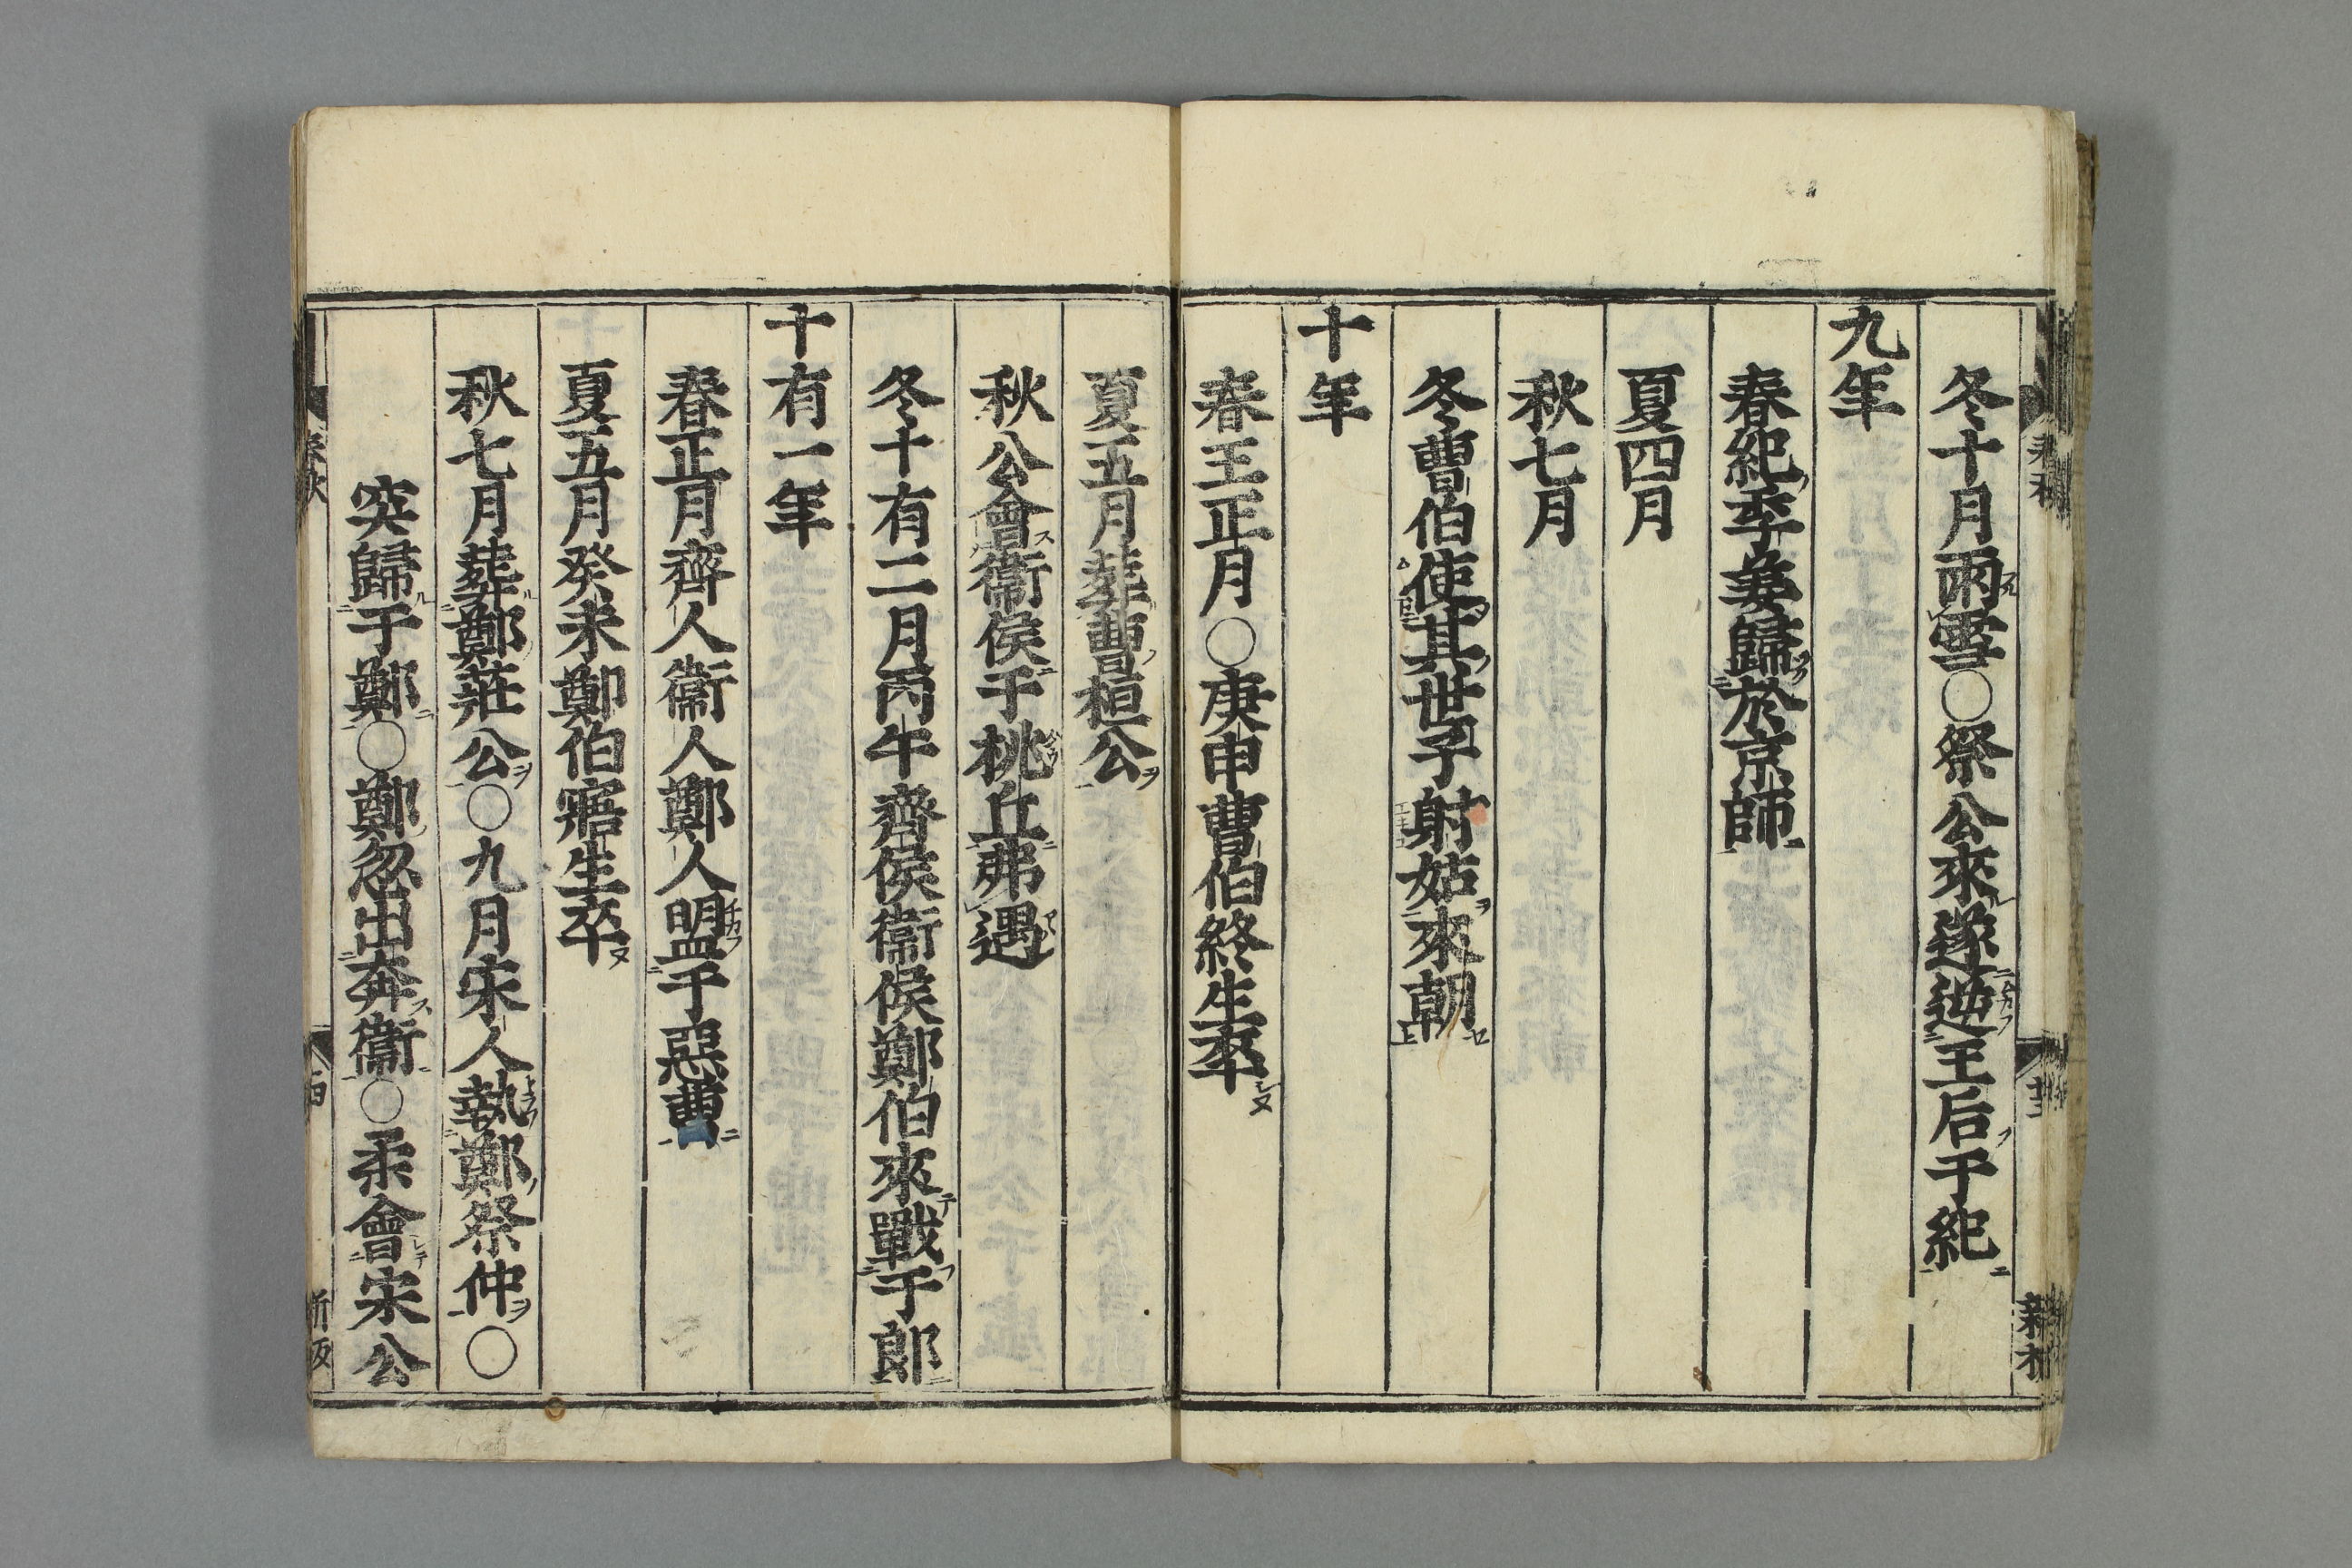 冬十月雨雪○祭公來遂逆王后于紀
九年
春紀季姜歸於京師
夏四月
秋七月
冬曹伯使其世子射姑來朝
十年
春王正月○庚申曹伯終生卒
夏五月葬曹桓公
秋公會衞侯于桃丘弗遇
冬十有二月丙午齊侯衞侯鄭伯來戰于郎
十有一年
春正月齊人衞人鄭人盟于惡曹
夏五月癸未鄭伯寤生卒
秋七月葬鄭莊公○九月宋人執鄭祭仲○
突歸于鄭○鄭忽出奔衞○柔會宋公